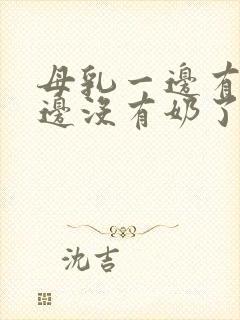 母乳一邊有
邊沒有奶了
沈吉